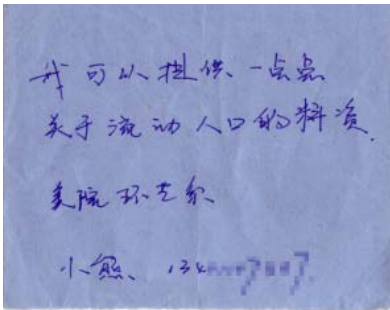 我可以提供一点点
关于流动人口的料资
美院环艺系
小熊、134